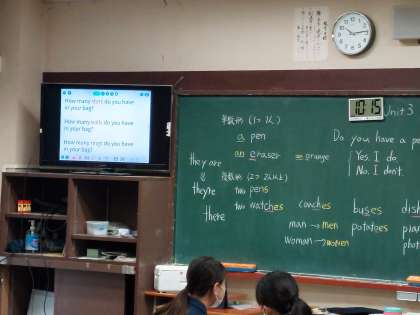 How many shirts do you have
in your bag?
How many balls do you have
in your bag?
How many rings do you have
in your bag?
10:15
Unit 3
単数形 (1つ, 1人)
a pen
an eraser
orange
they are
they're
there
複数形 (2つ, 2人以上)
two pens
two watches
couches
buses
man → men
potatoes
woman → women
Do you have a pe
Yes, I do.
No, I don't.